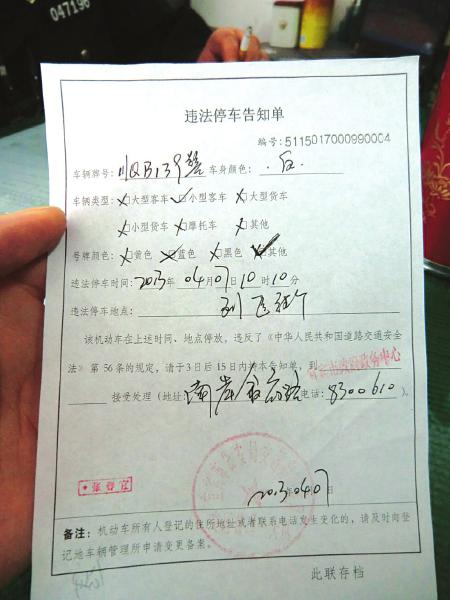 047196
违法停车告知单
编号:5115017000990004
车辆牌号:川QB139警 车身颜色: 白
车辆类型:□大型客车 □小型客车 □大型货车
□小型货车 □摩托车 □其他
号牌颜色:□黄色 □蓝色 □黑色 □其他
违法停车时间:2013年04月07日10时10分
违法停车地点:
该机动车在上述时间、地点停放,违反了《中华人民共和国道路交通安全
法》第56条的规定,请于3日后15日内持本告知单,到
政务中心
接受处理(地址:南岸 路 电话:8300610)。
2013年04月07日
备注:机动车所有人登记的住所地址或者联系电话发生变化的,请及时向登
记地车辆管理所申请变更备案。
此联存档